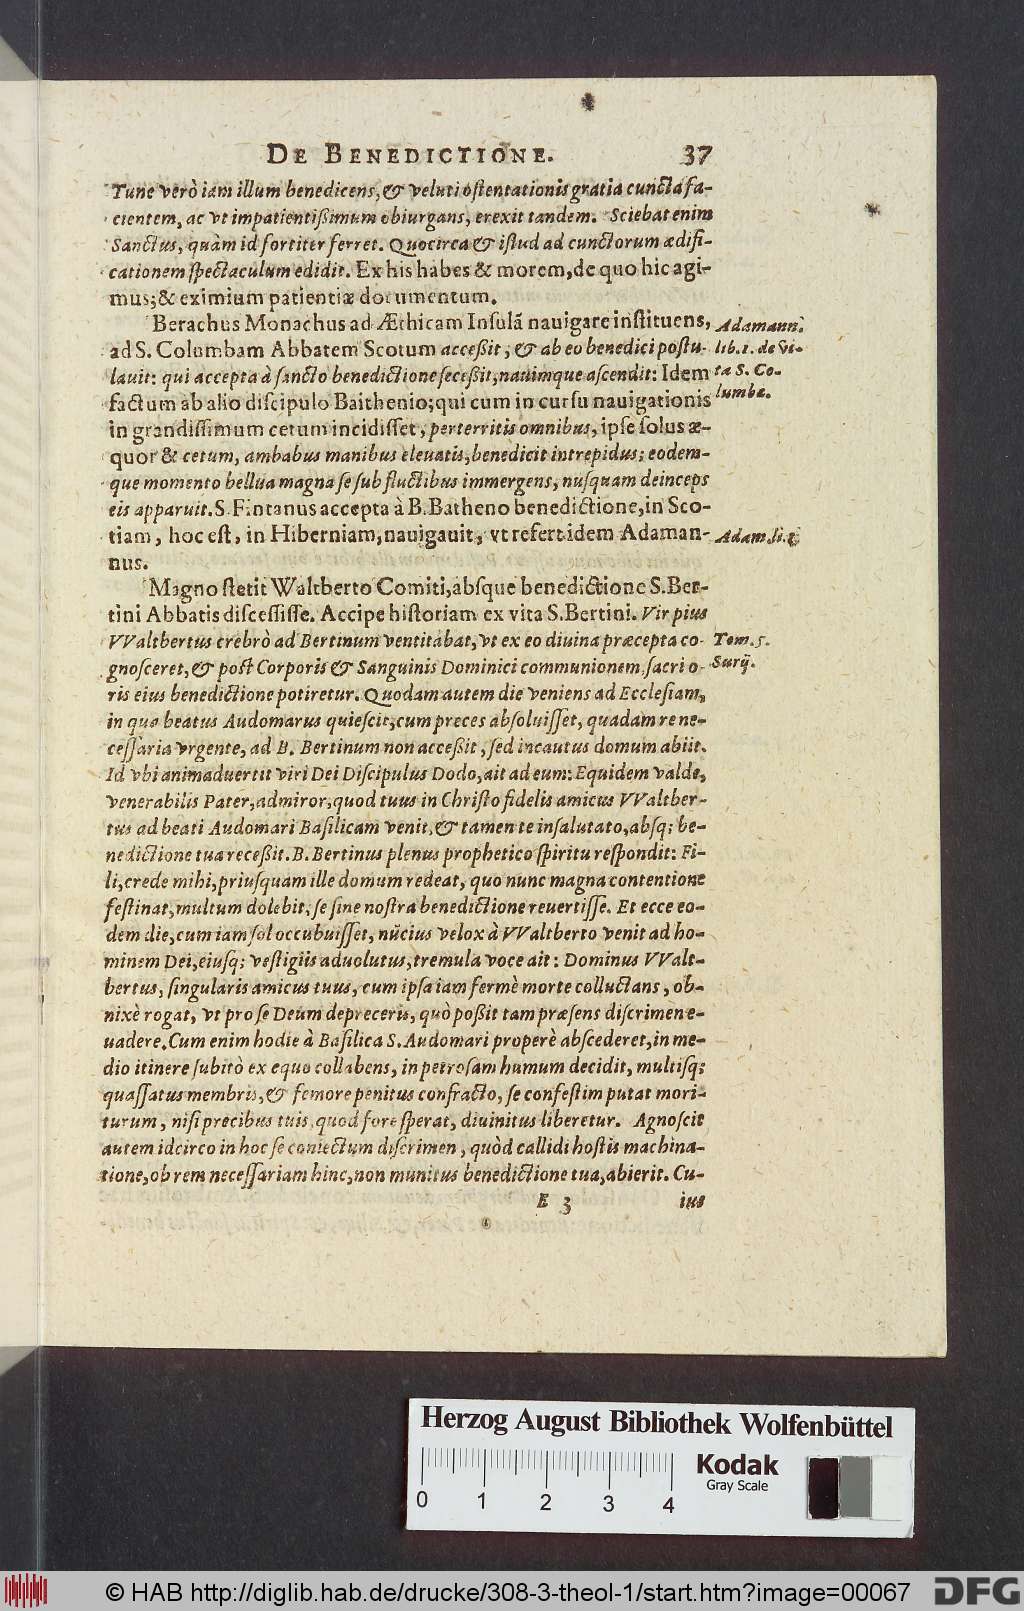 DE BENEDICTIONE. 37
Tunc verò iam illum benedicens, & veluti ostentationis gratia cuncta fa-
cientem, ac vt impatientißimum obiurgans, erexit tandem. Sciebat enim
Sanctus, quàm id fortiter ferret. Quocirca & istud ad cunctorum ædifi-
cationem spectaculum edidit. Ex his habes & morem, de quo hic agi-
mus; & eximium patientiæ documentum.
Berachus Monachus ad Æthicam Insulã nauigare instituens,
ad S. Columbam Abbatem Scotum acceßit, & ab eo benedici postu-
lauit: qui accepta à sancto benedictione seceßit, nauimque ascendit: Idem
factum ab alio discipulo Baithenio; qui cum in cursu nauigationis
in grandissimum cetum incidisset, perterritis omnibus, ipse solus æ-
quor & cetum, ambabus manibus eleuatis, benedicit intrepidus; eodem-
que momento bellua magna se sub fluctibus immergens, nusquam deinceps
eis apparuit. S. Fintanus accepta à B. Batheno benedictione, in Sco-
tiam, hoc est, in Hiberniam, nauigauit, vt refert idem Adaman-
nus.
Adamann.
lib. 1. de Vi-
ta S. Co-
lumbæ.
Adam.
Magno stetit Waltberto Comiti, absque benedictione S. Ber-
tini Abbatis discessisse. Accipe historiam ex vita S. Bertini. Vir pius
VValtbertus crebrò ad Bertinum ventitabat, vt ex eo diuina præcepta co-
gnosceret, & post Corporis & Sanguinis Dominici communionem, sacri o-
ris eius benedictione potiretur. Quodam autem die veniens ad Ecclesiam,
in qua beatus Audomarus quiescit, cum preces absoluisset, quadam re ne-
cessaria vrgente, ad B. Bertinum non acceßit, sed incautus domum abiit.
Id vbi animaduertit viri Dei Discipulus Dodo, ait ad eum: Equidem valde,
venerabilis Pater, admiror, quod tuus in Christo fidelis amicus VValtber-
tus ad beati Audomari Basilicam venit, & tamen te insalutato, absq; be-
nedictione tua receßit. B. Bertinus plenus prophetico spiritu respondit: Fi-
li, crede mihi, priusquam ille domum redeat, quo nunc magna contentione
festinat, multum dolebit, se sine nostra benedictione reuertisse. Et ecce eo-
dem die, cum iam sol occubuisset, nũcius velox à VValtberto venit ad ho-
minem Dei, eiusq; vestigiis aduolutus, tremula voce ait: Dominus VValt-
bertus, singularis amicus tuus, cum ipsa iam fermè morte colluctans, ob-
nixè rogat, vt pro se Deum depreceris, quò poßit tam præsens discrimen e-
uadere. Cum enim hodie à Basilica S. Audomari properè abscederet, in me-
dio itinere subitò ex equo collabens, in petrosam humum decidit, multisq;
quassatus membris, & femore penitus confracto, se confestim putat mori-
turum, nisi precibus tuis, quod fore sperat, diuinitus liberetur. Agnoscit
autem idcirco in hoc se coniectum discrimen, quòd callidi hostis machina-
tione, ob rem necessariam hinc, non munitus benedictione tua, abierit. Cu-
Tom. 5.
Surij.
E 3 ius
Herzog August Bibliothek Wolfenbüttel
0 1 2 3 4
Kodak
Gray Scale
© HAB http://diglib.hab.de/drucke/308-3-theol-1/start.htm?image=00067
DFG